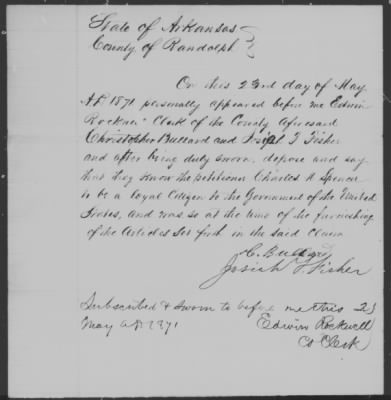 State of Arkansas
County of Randolph
On this 23rd day of May
AD 1871 personally appeared before me Edwin
Rockwell Clerk of the County Aforesaid
Christopher Bullard and Josiah T Fisher
and after being duly sworn, depose and say
that they know the petitioner Charles W Spencer
to be a loyal Citizen to the Government of the United
States, and was so at the time of the furnishing
of the Articles Set forth in the said Claim
C. Bullard
Josiah T Fisher
Subscribed & Sworn to before me this 23
May AD 1871
Edwin Rockwell
Co Clerk